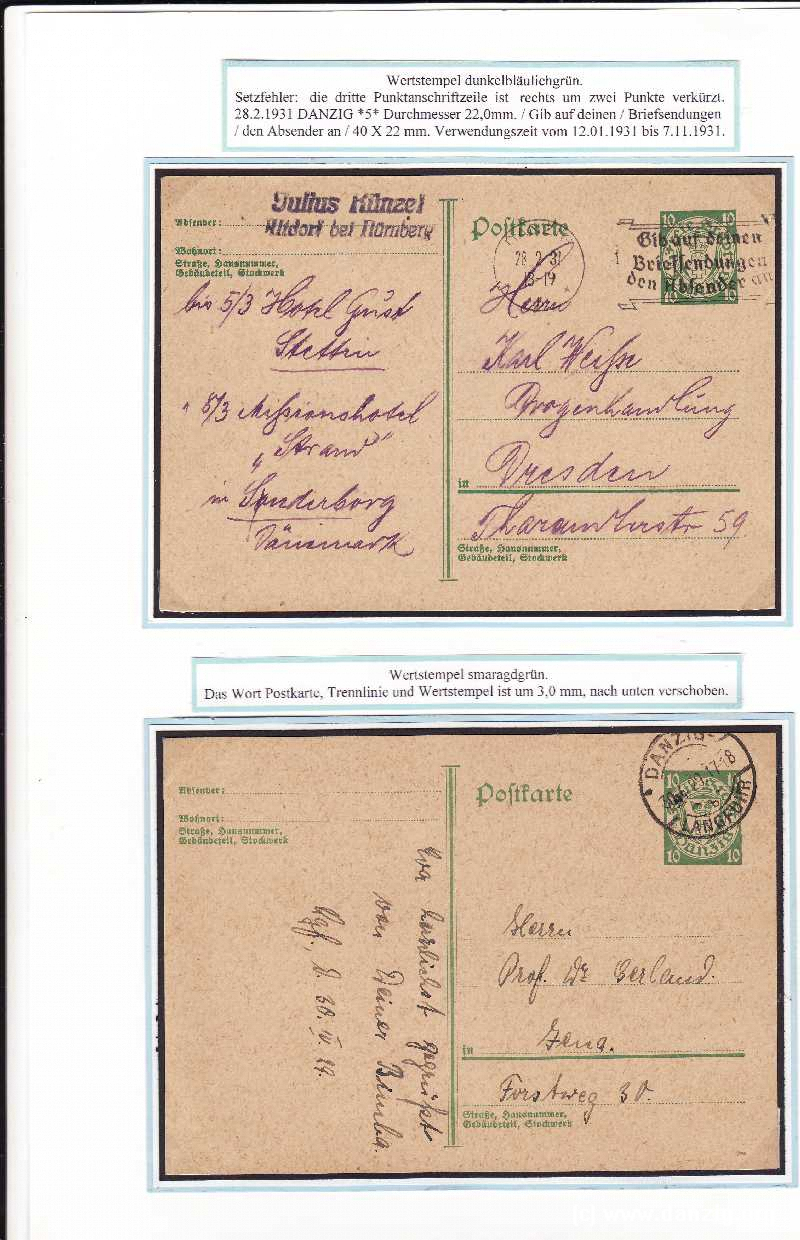 Wertstempel dunkelbläulichgrün.
Setzfehler: die dritte Punktanschriftzeile ist rechts um zwei Punkte verkürzt.
28.2.1931 DANZIG *5* Durchmesser 22,0mm. / Gib auf deinen / Briefsendungen
/ den Absender an / 40 X 22 mm. Verwendungszeit vom 12.01.1931 bis 7.11.1931.
Julius Künzel
Altdorf bei Nürnberg
Absender:
Wohnort:
Straße, Hausnummer,
Gebäudeteil, Stockwerk
bis 5/3 Hotel Gust
Stettin
" 8/3 Missionshotel
"Strand"
in Sonderborg
Dänemark
Postkarte
28.2.31
18-19
10 10
Gib auf deinen
Briefsendungen
den Absender an
10 10
Herrn
Karl Weiße
Drogenhandlung
in Dresden
Tharandterstr 59
Straße, Hausnummer,
Gebäudeteil, Stockwerk
Wertstempel smaragdgrün.
Das Wort Postkarte, Trennlinie und Wertstempel ist um 3,0 mm, nach unten verschoben.
Absender:
Wohnort:
Straße, Hausnummer,
Gebäudeteil, Stockwerk
herzlichst gegrüßt
von Deiner
30. V. 29.
Postkarte
DANZIG-
17-18
LANGFUHR
10
Danzig
10 10
Herrn
Prof. Dr Gerland.
in Jena.
Forstweg 30.
Straße, Hausnummer,
Gebäudeteil, Stockwerk